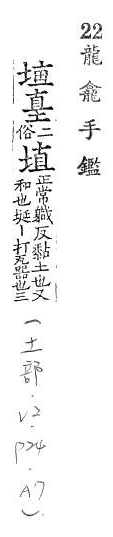 22龍龕手鑑
埴正常軄反黏土也又
和也埏—打瓦器也三
俗二
(土部.V2.
P24.A7)